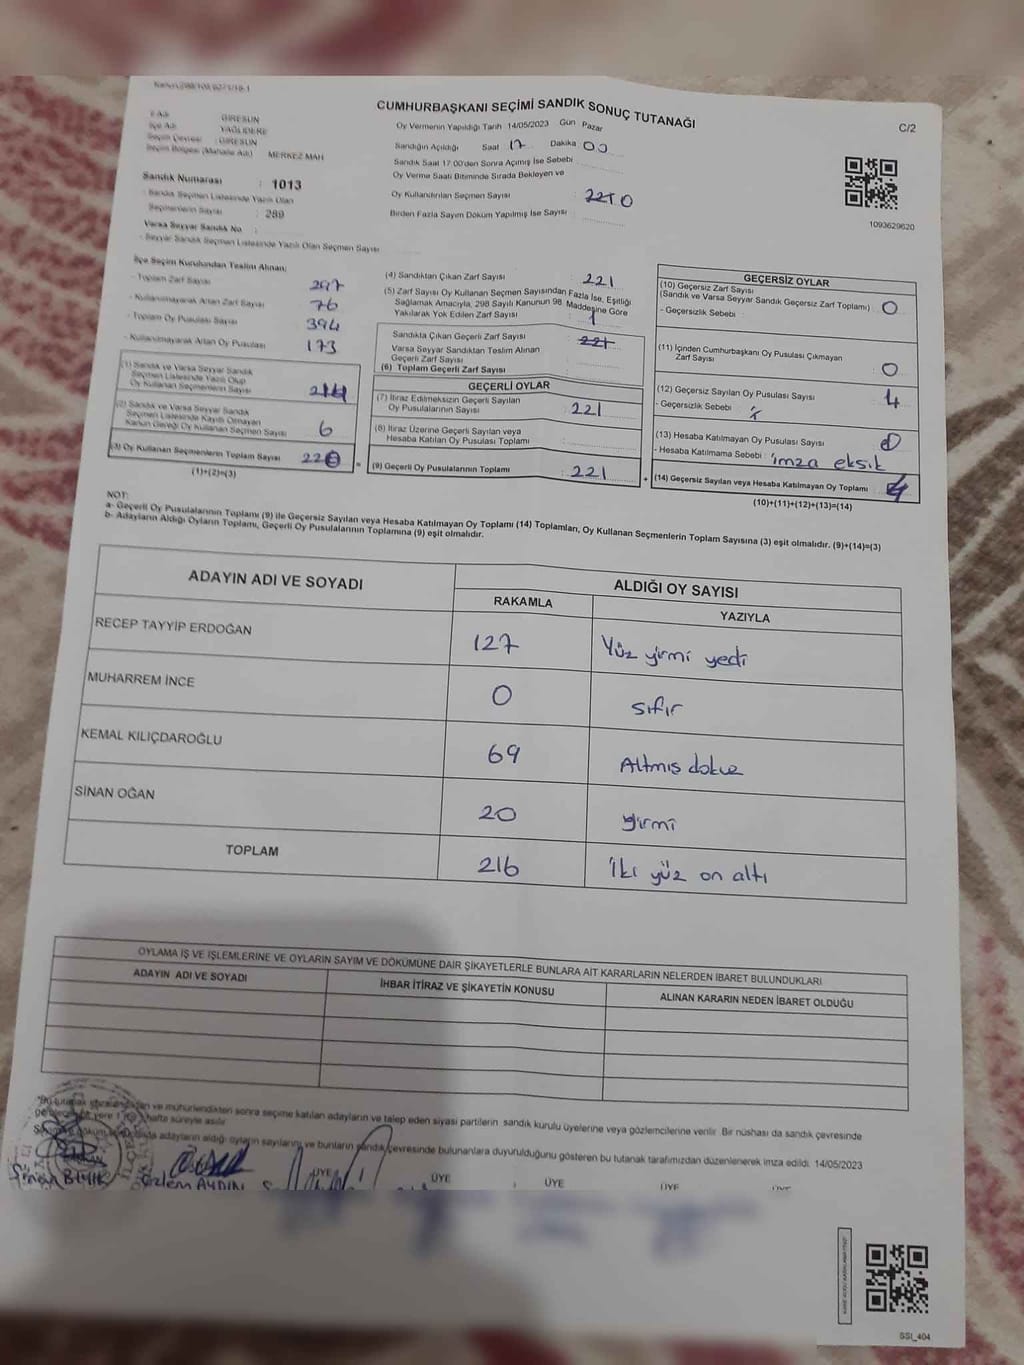 CUMHURBAŞKANI SEÇİMİ SANDIK SONUÇ TUTANAĞI
C/2
İl Adı : GİRESUN
İlçe Adı : YAĞLIDERE
Seçim Çevresi : GİRESUN
Seçim Bölgesi (Mahalle Adı) : MERKEZ MAH
Sandık Numarası : 1013
Sandık Seçmen Listesinde Yazılı Olan
Seçmenlerin Sayısı : 289
Varsa Seyyar Sandık No :
- Seyyar Sandık Seçmen Listesinde Yazılı Olan Seçmen Sayısı
Oy Vermenin Yapıldığı Tarih 14/05/2023 Gün Pazar
Sandığın Açıldığı Saat 17 Dakika 00
Sandık Saat 17.00'den Sonra Açımış İse Sebebi :
Oy Verme Saati Bitiminde Sırada Bekleyen ve
Oy Kullandırılan Seçmen Sayısı :
Birden Fazla Sayım Döküm Yapılmış İse Sayısı :
1093629620
İlçe Seçim Kurulundan Teslim Alınan;
- Toplam Zarf Sayısı : 297
- Kullanılmayarak Artan Zarf Sayısı : 76
- Toplam Oy Pusulası Sayısı : 394
- Kullanılmayarak Artan Oy Pusulası : 173
(1) Sandık ve Varsa Seyyar Sandık
Seçmen Listesinde Yazılı Olup
Oy Kullanan Seçmenlerin Sayısı
(2) Sandık ve Varsa Seyyar Sandık
Seçmen Listesinde Kayıtlı Olmayan
Kanun Gereği Oy Kullanan Seçmen Sayısı : 6
(3) Oy Kullanan Seçmenlerin Toplam Sayısı :
(1)+(2)=(3)
(4) Sandıktan Çıkan Zarf Sayısı : 221
(5) Zarf Sayısı Oy Kullanan Seçmen Sayısından Fazla İse, Eşitliği
Sağlamak Amacıyla, 298 Sayılı Kanunun 98. Maddesine Göre
Yakılarak Yok Edilen Zarf Sayısı : 1
Sandıkta Çıkan Geçerli Zarf Sayısı : 221
Varsa Seyyar Sandıktan Teslim Alınan
Geçerli Zarf Sayısı
(6) Toplam Geçerli Zarf Sayısı :
GEÇERLİ OYLAR
(7) İtiraz Edilmeksizin Geçerli Sayılan
Oy Pusulalarının Sayısı : 221
(8) İtiraz Üzerine Geçerli Sayılan veya
Hesaba Katılan Oy Pusulası Toplamı :
(9) Geçerli Oy Pusulalarının Toplamı : 221
GEÇERSİZ OYLAR
(10) Geçersiz Zarf Sayısı
(Sandık ve Varsa Seyyar Sandık Geçersiz Zarf Toplamı) : 0
- Geçersizlik Sebebi :
(11) İçinden Cumhurbaşkanı Oy Pusulası Çıkmayan
Zarf Sayısı : 0
(12) Geçersiz Sayılan Oy Pusulası Sayısı : 4
- Geçersizlik Sebebi :
(13) Hesaba Katılmayan Oy Pusulası Sayısı :
- Hesaba Katılmama Sebebi : imza eksik
(14) Geçersiz Sayılan veya Hesaba Katılmayan Oy Toplamı : 4
(10)+(11)+(12)+(13)=(14)
NOT:
a- Geçerli Oy Pusulalarının Toplamı (9) ile Geçersiz Sayılan veya Hesaba Katılmayan Oy Toplamı (14) Toplamları, Oy Kullanan Seçmenlerin Toplam Sayısına (3) eşit olmalıdır. (9)+(14)=(3)
b- Adayların Aldığı Oyların Toplamı, Geçerli Oy Pusulalarının Toplamına (9) eşit olmalıdır.
ADAYIN ADI VE SOYADI ALDIĞI OY SAYISI
RAKAMLA YAZIYLA
RECEP TAYYİP ERDOĞAN 127 Yüz yirmi yedi
MUHARREM İNCE 0 sıfır
KEMAL KILIÇDAROĞLU 69 Altmış dokuz
SİNAN OĞAN 20 yirmi
TOPLAM 216 iki yüz on altı
OYLAMA İŞ VE İŞLEMLERİNE VE OYLARIN SAYIM VE DÖKÜMÜNE DAİR ŞİKAYETLERLE BUNLARA AİT KARARLARIN NELERDEN İBARET BULUNDUKLARI
ADAYIN ADI VE SOYADI İHBAR İTİRAZ VE ŞİKAYETİN KONUSU ALINAN KARARIN NEDEN İBARET OLDUĞU
ve mühürlendikten sonra seçime katılan adayların ve talep eden siyasi partilerin sandık kurulu üyelerine veya gözlemcilerine verilir. Bir nüshası da sandık çevresinde
hafta süreyle asılır.
adayların aldığı oyların sayılarını ve bunların sandık çevresinde bulunanlara duyurulduğunu gösteren bu tutanak tarafımızdan düzenlenerek imza edildi. 14/05/2023
BAŞKAN
Sinan BIYIK Özlem AYDIN
ÜYE ÜYE ÜYE ÜYE
SSI_404